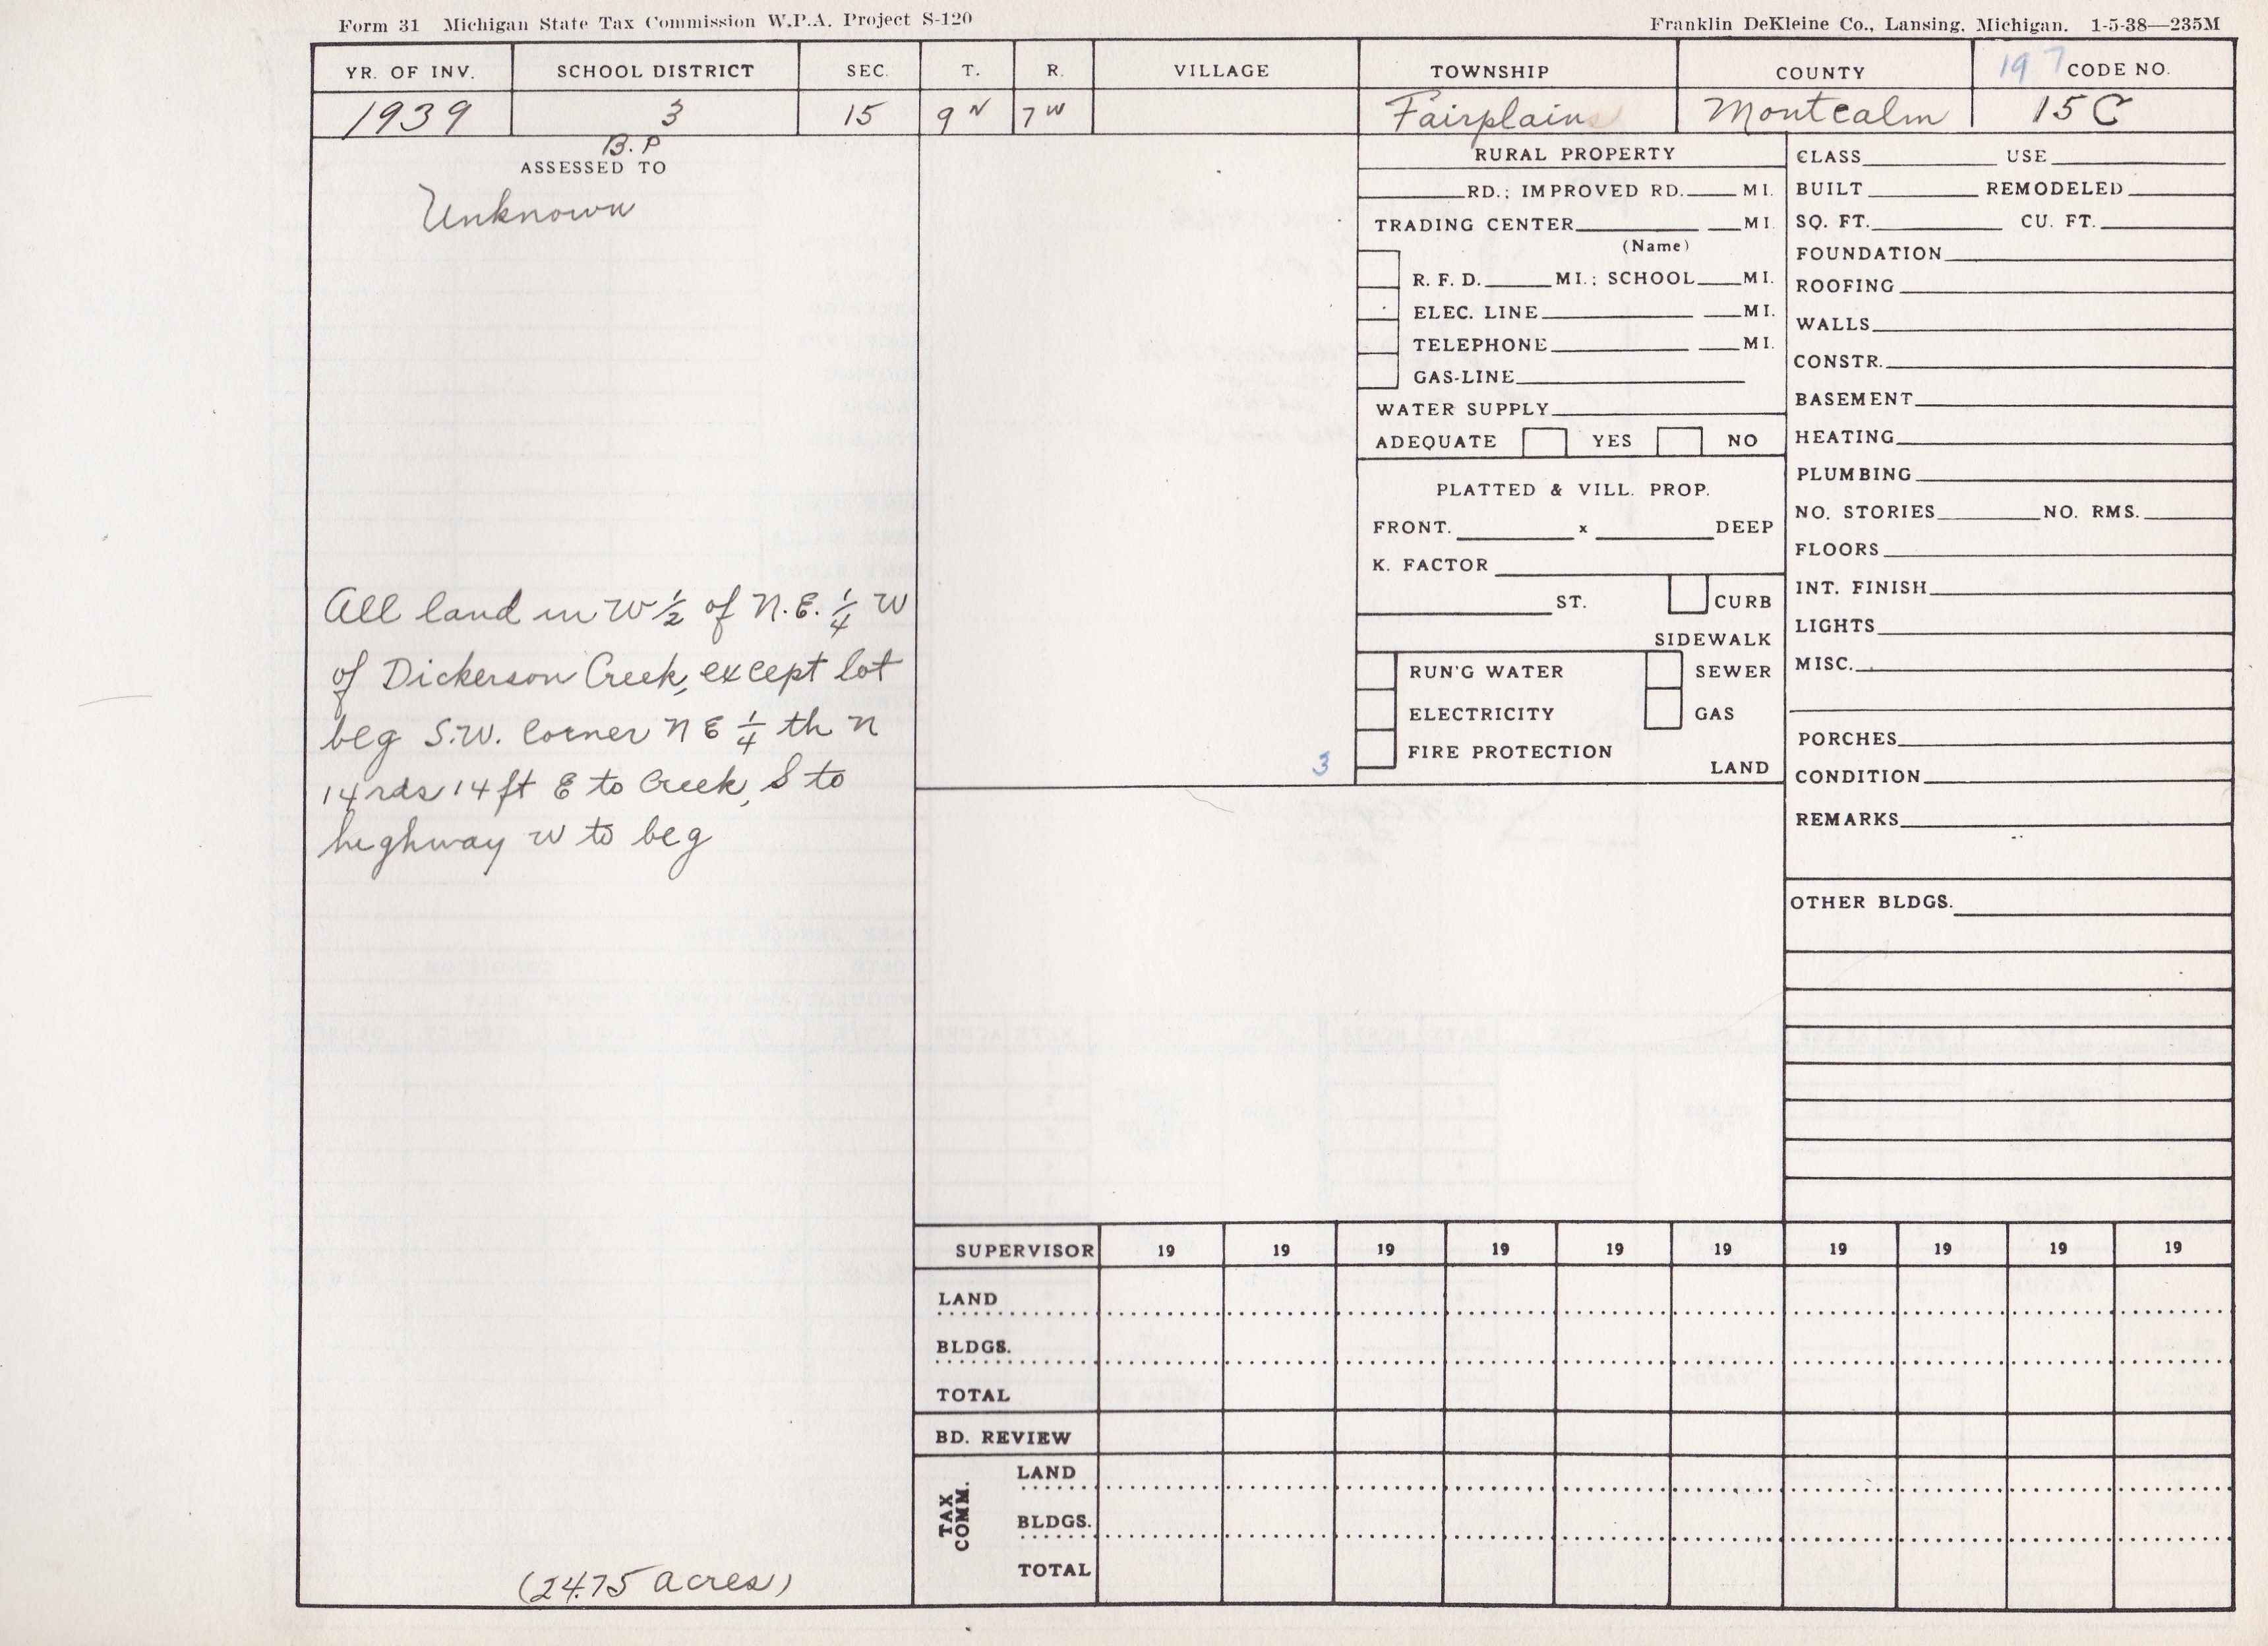 Form 31 Michigan State Tax Commission W.P.A. Project S-120
Franklin DeKleine Co., Lansing, Michigan. 1-5-38—235M
YR. OF INV. SCHOOL DISTRICT SEC. T. R. VILLAGE TOWNSHIP COUNTY 197 CODE NO.
1939 3 15 9 N 7 W Fairplains Montcalm 15 C
B.P
ASSESSED TO
Unknown
All land in W 1/2 of N.E. 1/4 W
of Dickerson Creek, except lot
beg S.W. Corner N E 1/4 th N
14 rds 14 ft E to Creek, S to
highway W to beg
(24.75 acres)
3
RURAL PROPERTY
RD.; IMPROVED RD. MI.
TRADING CENTER MI.
(Name)
R. F. D. MI.; SCHOOL MI.
ELEC. LINE MI.
TELEPHONE MI.
GAS-LINE
WATER SUPPLY
ADEQUATE YES NO
PLATTED & VILL. PROP.
FRONT. x DEEP
K. FACTOR
ST. CURB
SIDEWALK
RUN'G WATER SEWER
ELECTRICITY GAS
FIRE PROTECTION
LAND
CLASS USE
BUILT REMODELED
SQ. FT. CU. FT.
FOUNDATION
ROOFING
WALLS
CONSTR.
BASEMENT
HEATING
PLUMBING
NO. STORIES NO. RMS.
FLOORS
INT. FINISH
LIGHTS
MISC.
PORCHES
CONDITION
REMARKS
OTHER BLDGS.
SUPERVISOR 19 19 19 19 19 19 19 19 19 19
LAND
BLDGS.
TOTAL
BD. REVIEW
TAX COMM.
LAND
BLDGS.
TOTAL